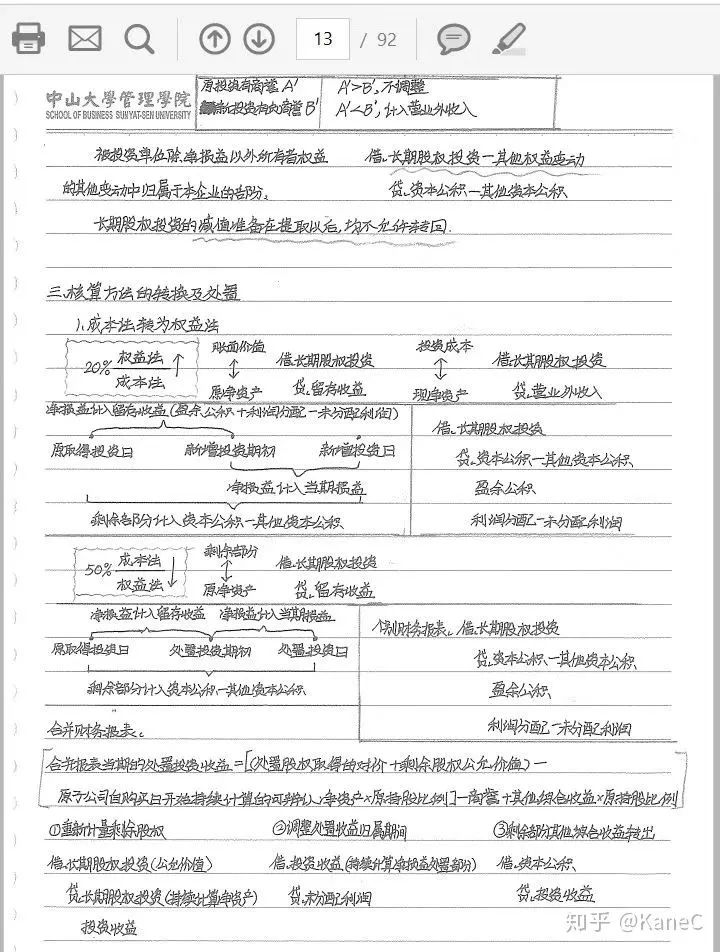 13 / 92
中山大學管理學院
SCHOOL OF BUSINESS SUN YAT-SEN UNIVERSITY
原投资有商誉 A' A'>B',不调整
新投资有负商誉 B' A'<B',计入营业外收入
被投资单位除净损益以外所有者权益 借:长期股权投资—其他权益变动
的其他变动中归属于本企业的部分。 贷:资本公积—其他资本公积
长期股权投资的减值准备在提取以后,均不允许转回.
三、核算方法的转换及处置
1.成本法转为权益法
账面价值 借:长期股权投资 投资成本 借:长期股权投资
20% 权益法 ↑ ↕ ↕
成本法 原净资产 贷:留存收益 现净资产 贷:营业外收入
净损益计入留存收益(盈余公积+利润分配—未分配利润)
借:长期股权投资
原取得投资日 新增投资期初 新增投资日
贷:资本公积—其他资本公积
净损益计入当期损益 盈余公积
剩余部分计入资本公积—其他资本公积 利润分配—未分配利润
50% 成本法 ↓ 剩余部分 借:长期股权投资
权益法 ↕
原净资产 贷:留存收益
净损益计入留存收益 净损益计入当期损益
个别财务报表: 借:长期股权投资
原取得投资日 处置投资期初 处置投资日
贷:资本公积—其他资本公积
剩余部分计入资本公积—其他资本公积 盈余公积
合并财务报表: 利润分配—未分配利润
合并报表当期的处置投资收益=[(处置股权取得的对价+剩余股权公允价值)—
原子公司自购买日开始持续计算的可辨认净资产×原持股比例]—商誉+其他综合收益×原持股比例
①重新计量剩余股权 ②调整处置收益归属期间 ③剩余部分其他综合收益转出
借:长期股权投资(公允价值) 借:投资收益(持续计算净损益处置部分) 借:资本公积
贷:长期股权投资(持续计算净资产) 贷:未分配利润 贷:投资收益
投资收益
知乎 @KaneC